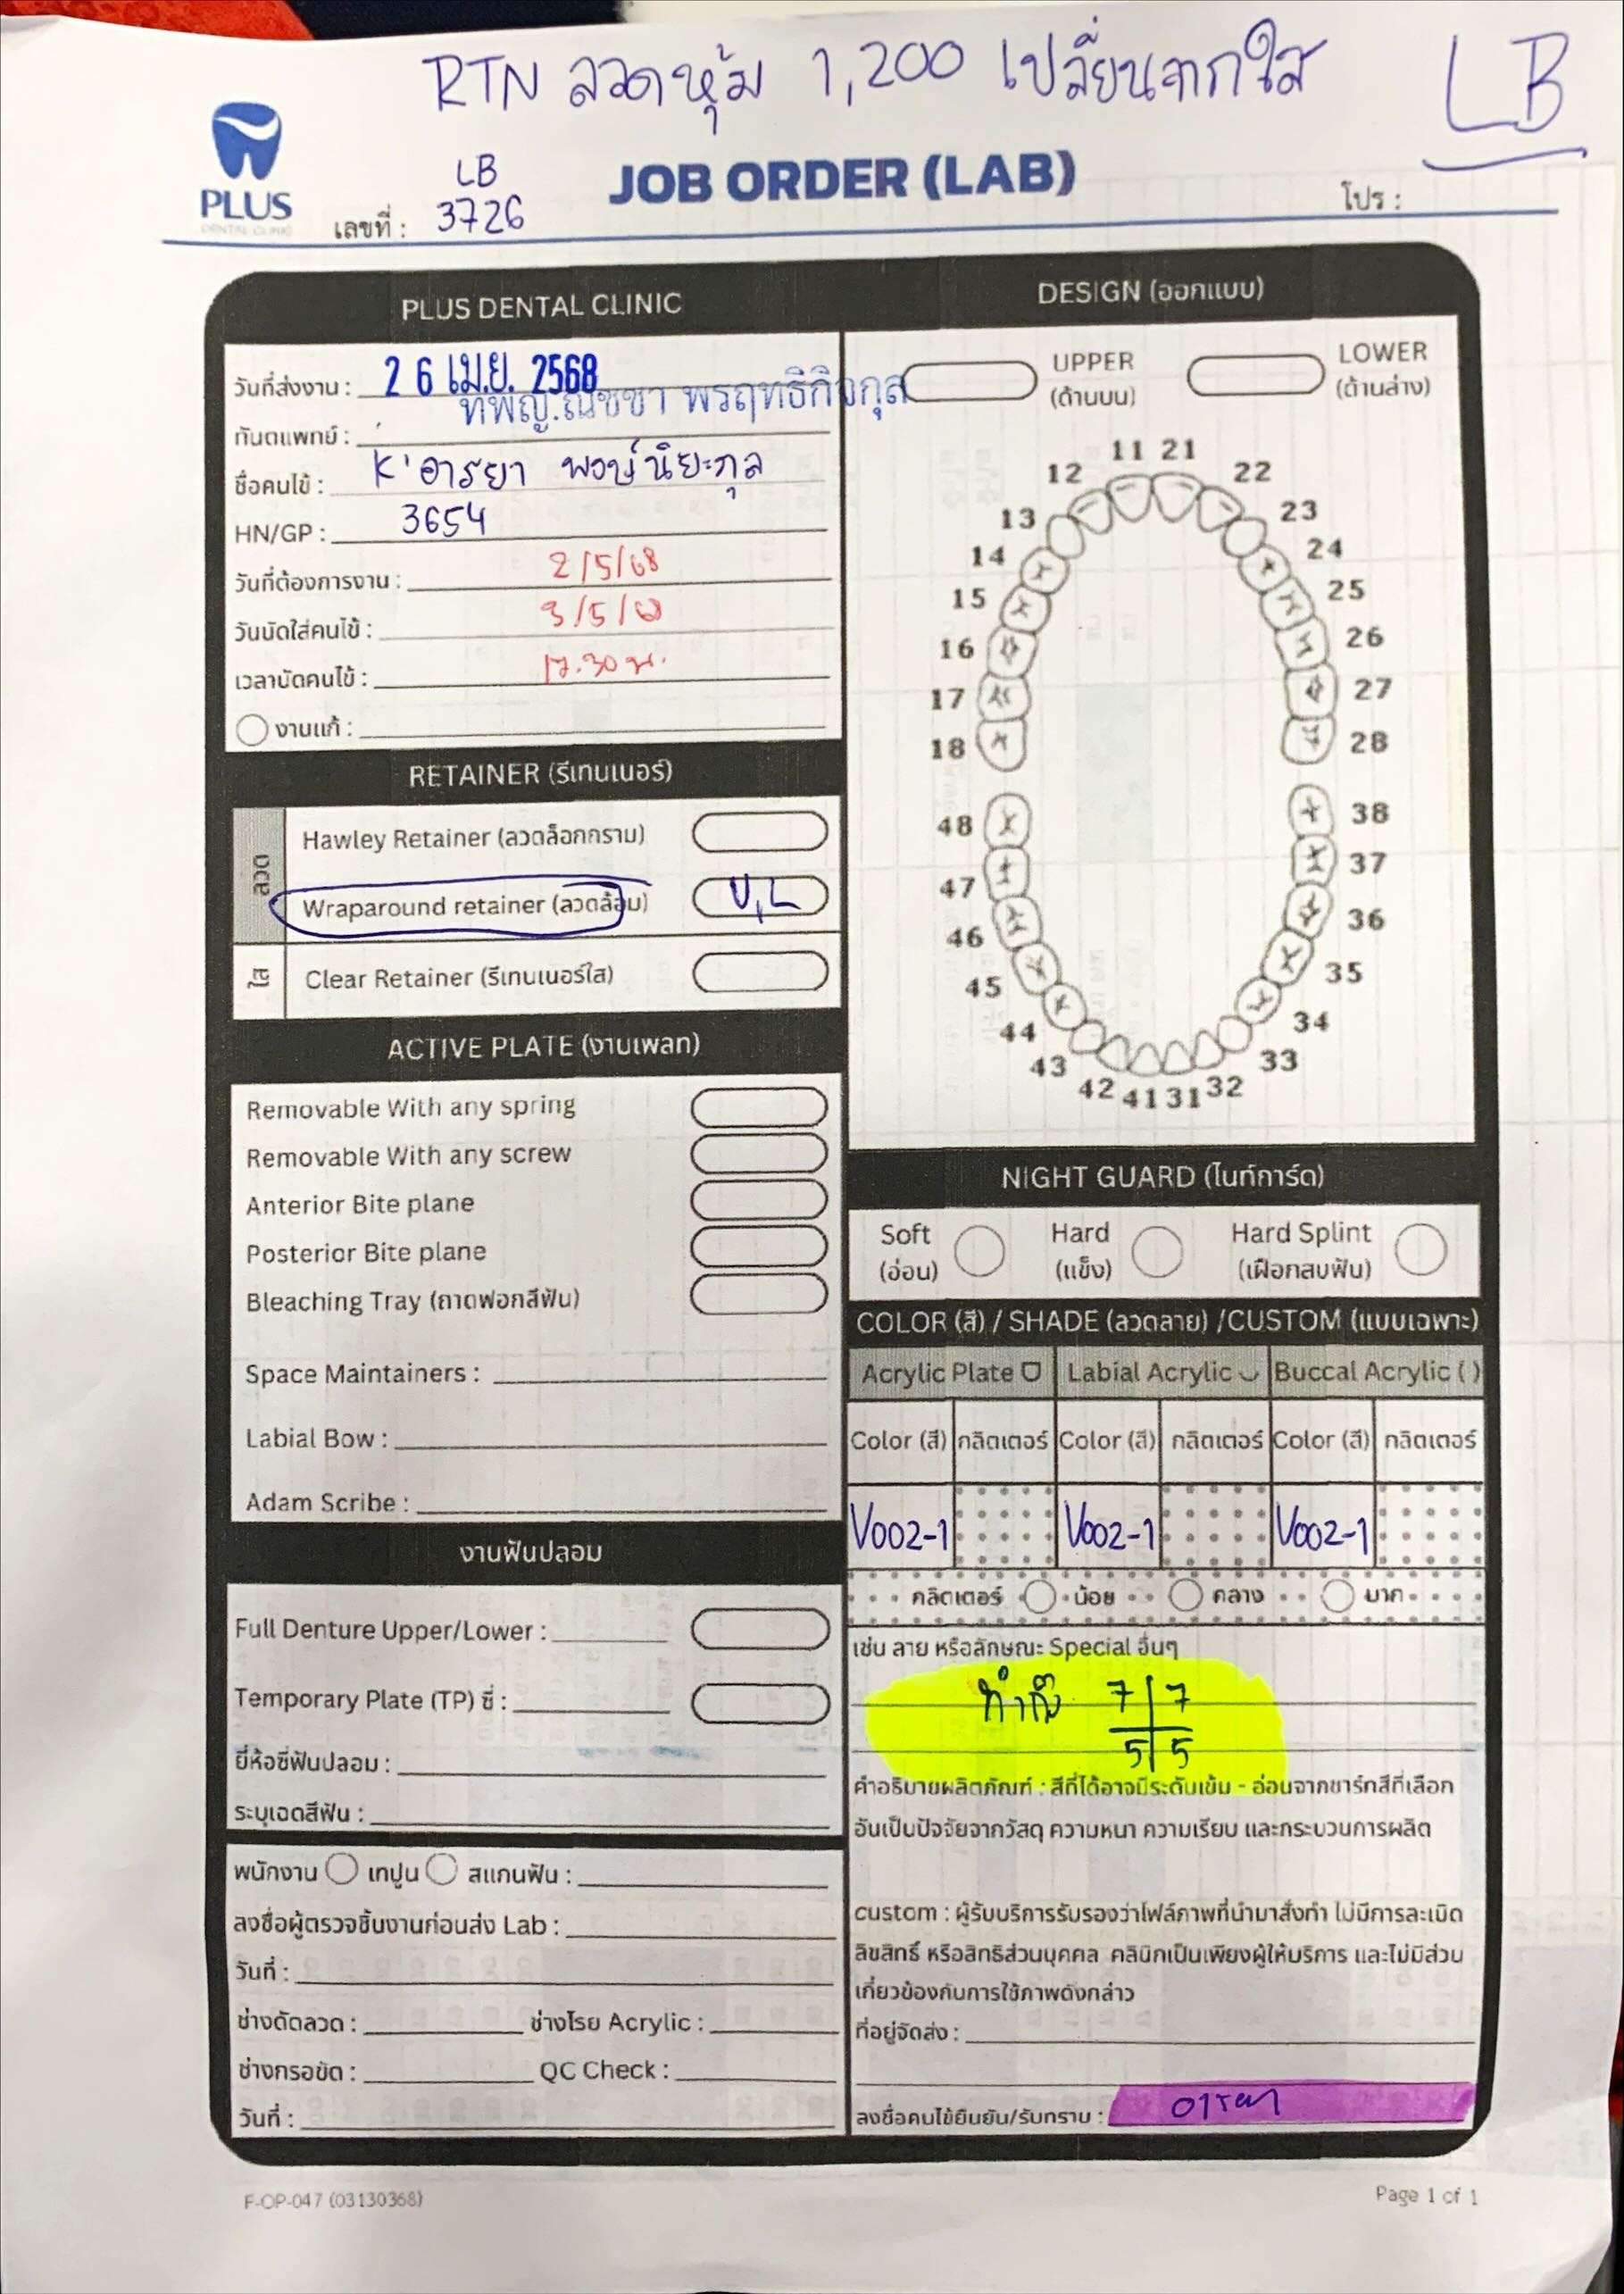 RTN ลวดหุ้ม 1,200 เปลี่ยนจากใส
LB
PLUS
DENTAL CLINIC
JOB ORDER (LAB)
เลขที่ : LB 3726
โปร :
PLUS DENTAL CLINIC
วันที่ส่งงาน : 26 เม.ย. 2568
ทันตแพทย์ : ทพญ.ณัชชา พรฤทธิกิจกุล
ชื่อคนไข้ : K'อารยา พงษ์นิยะกุล
HN/GP : 3654
วันที่ต้องการงาน : 2/5/68
วันนัดใส่คนไข้ : 3/5/68
เวลานัดคนไข้ : 17.30 น.
งานแก้ :
RETAINER (รีเทนเนอร์)
ลวด
Hawley Retainer (ลวดล็อกกราม)
Wraparound retainer (ลวดล้อม) U,L
ใส
Clear Retainer (รีเทนเนอร์ใส)
ACTIVE PLATE (งานเพลท)
Removable With any spring
Removable With any screw
Anterior Bite plane
Posterior Bite plane
Bleaching Tray (ถาดฟอกสีฟัน)
Space Maintainers :
Labial Bow :
Adam Scribe :
งานฟันปลอม
Full Denture Upper/Lower :
Temporary Plate (TP) ซี่ :
ยี่ห้อซี่ฟันปลอม :
ระบุเฉดสีฟัน :
พนักงาน เทปูน สแกนฟัน :
ลงชื่อผู้ตรวจชิ้นงานก่อนส่ง Lab :
วันที่ :
ช่างดัดลวด : ช่างโรย Acrylic :
ช่างกรอขัด : QC Check :
วันที่ :
DESIGN (ออกแบบ)
UPPER
(ด้านบน)
LOWER
(ด้านล่าง)
11 21
12 22
13 23
14 24
15 25
16 26
17 27
18 28
48 38
47 37
46 36
45 35
44 34
43 33
42 41 31 32
NIGHT GUARD (ไนท์การ์ด)
Soft Hard Hard Splint
(อ่อน) (แข็ง) (เฝือกสบฟัน)
COLOR (สี) / SHADE (ลวดลาย) /CUSTOM (แบบเฉพาะ)
Acrylic Plate Labial Acrylic Buccal Acrylic ( )
Color (สี) กลิตเตอร์ Color (สี) กลิตเตอร์ Color (สี) กลิตเตอร์
V002-1 V002-1 V002-1
กลิตเตอร์ น้อย กลาง มาก
เช่น ลาย หรือลักษณะ Special อื่นๆ
ทำถึง 7 7
5 5
คำอธิบายผลิตภัณฑ์ : สีที่ได้อาจมีระดับเข้ม - อ่อนจากชาร์ทสีที่เลือก
อันเป็นปัจจัยจากวัสดุ ความหนา ความเรียบ และกระบวนการผลิต
custom : ผู้รับบริการรับรองว่าไฟล์ภาพที่นำมาสั่งทำ ไม่มีการละเมิด
ลิขสิทธิ์ หรือสิทธิส่วนบุคคล คลินิกเป็นเพียงผู้ให้บริการ และไม่มีส่วน
เกี่ยวข้องกับการใช้ภาพดังกล่าว
ที่อยู่จัดส่ง :
ลงชื่อคนไข้ยืนยัน/รับทราบ : อารยา
F-OP-047 (03130368)
Page 1 of 1